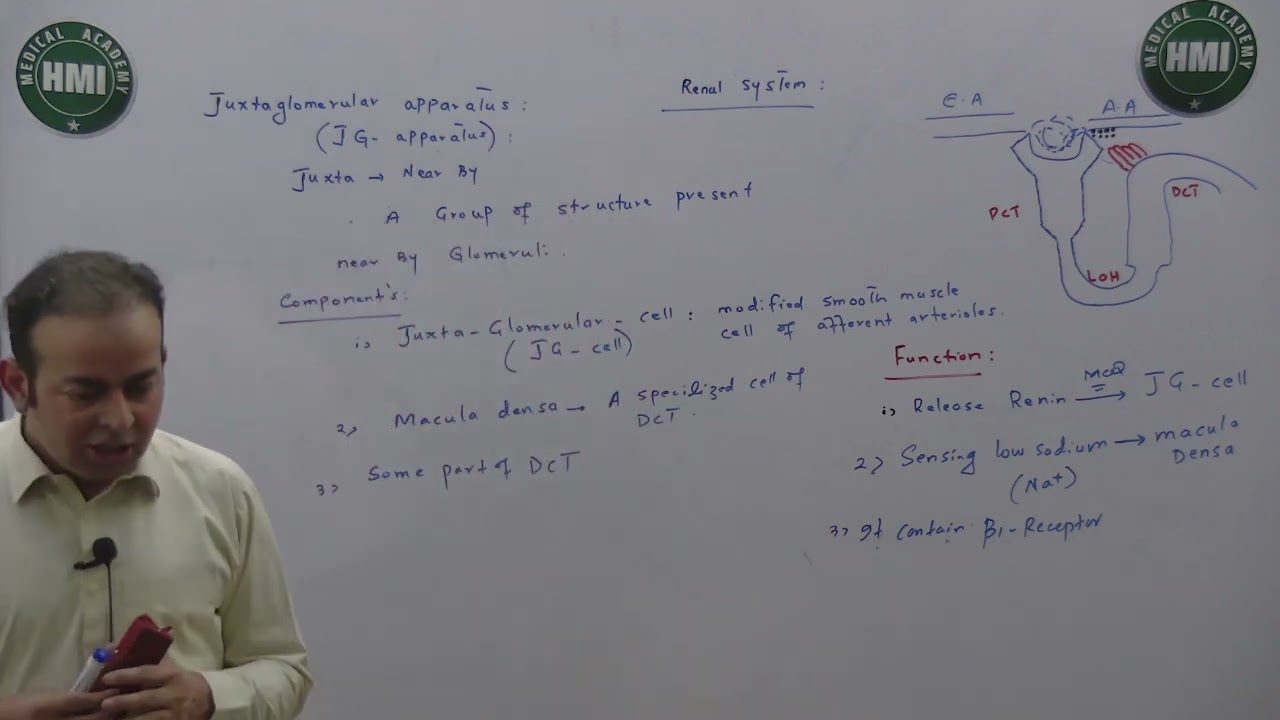 MEDICAL ACADEMY
HMI
MEDICAL ACADEMY
HMI
Renal system:
Juxtaglomerular apparatus:
(JG-apparatus):
Juxta → Near By
. A Group of structure present
near By Glomeruli.
Component's:
i, Juxta-Glomerular-cell: modified smooth muscle
cell of afferent arterioles.
(JG-cell)
2, Macula densa → A specilized cell of
DCT.
3, Some part of DCT
E.A
A.A
DCT
DCT
LOH
Function:
i, Release Renin MCQ → JG-cell
2, Sensing low sodium → macula
Densa
(Na+)
3, It contain β1-Receptor